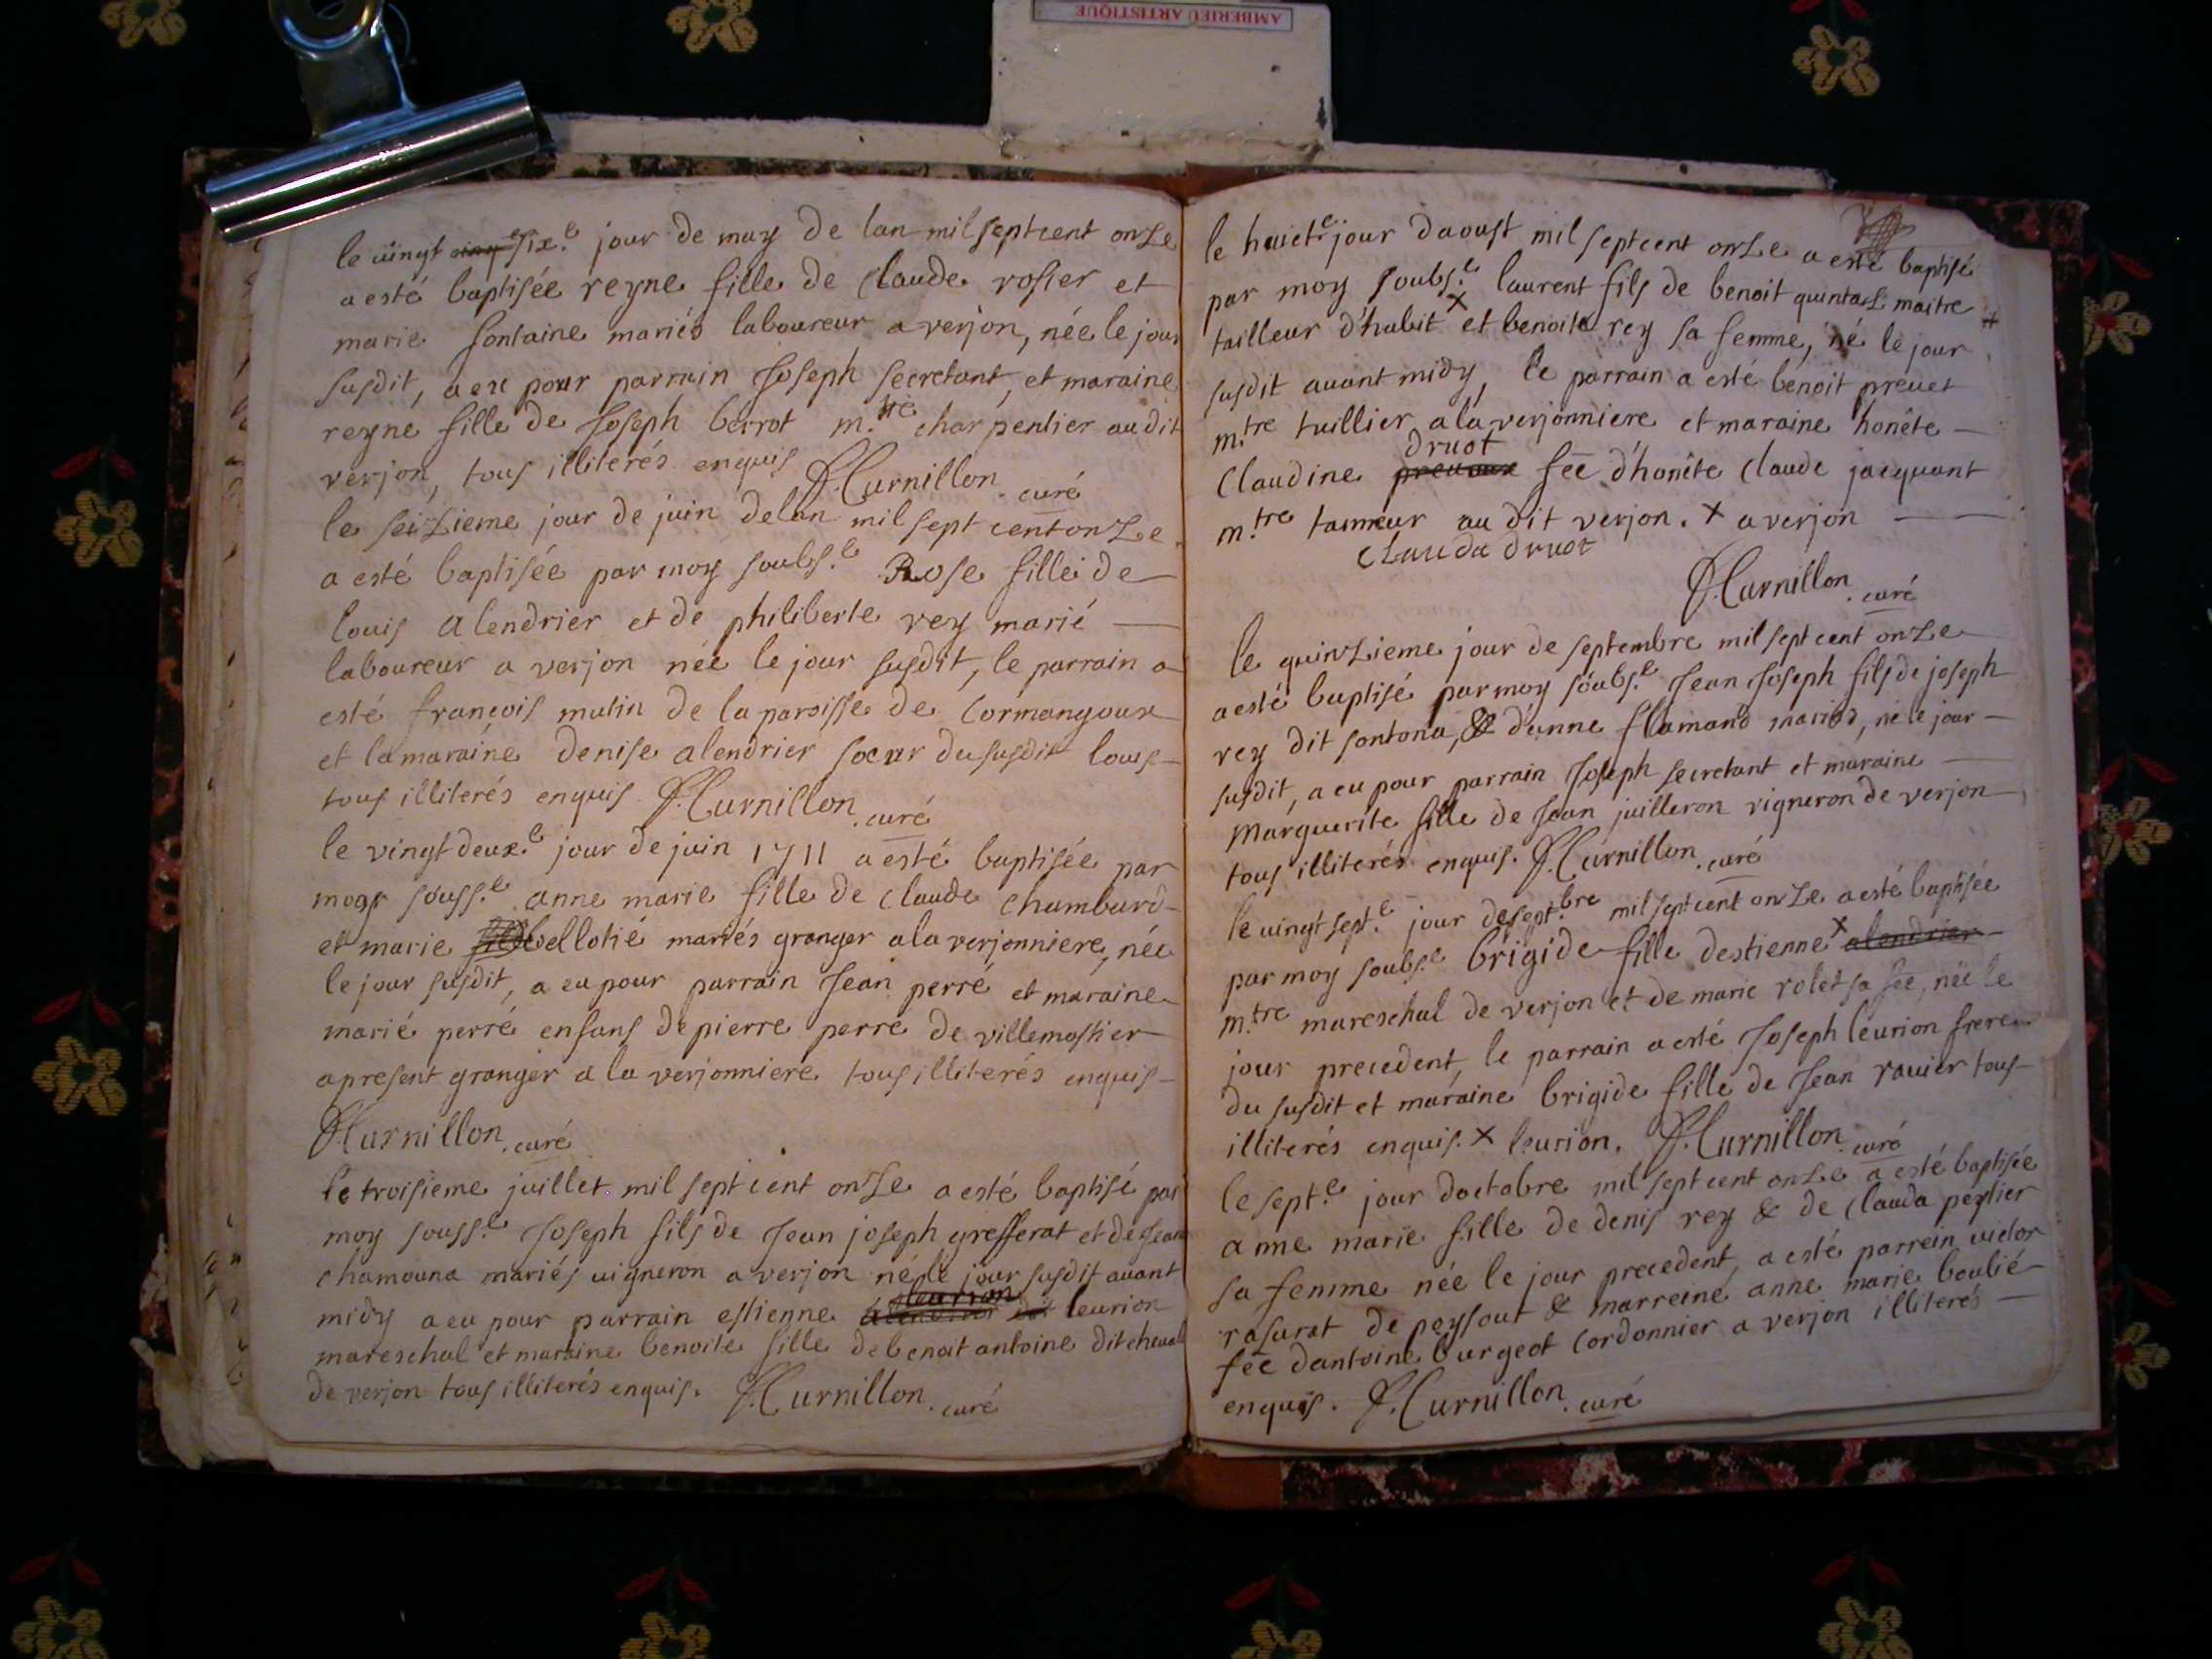 AMBERIEU ARTISTIQUE
le vingt cinq six.e jour de may de lan mil sept cent onze
a esté baptisée reyne fille de Claude rosier et
marie fontaine mariés laboureur a verjon, née le jour
susdit, a eu pour parrain Joseph secretant, et maraine
reyne fille de Joseph berrot m.tre charpentier au dit
verjon, tous illiterés enquis P. Curnillon. curé
le seizieme jour de juin de lan mil sept cent onze
a esté baptisée par moy soubs.e Rose fille de
louis alendrier et de philiberte rey marié
laboureur a verjon née le jour susdit, le parrain a
esté francois mutin de la paroisse de Cormangoux
et la maraine denise alendrier soeur du susdit louis
tous illiterés enquis P. Curnillon. curé
le vingt deux.e jour de juin 1711 a esté baptisée par
moy souss.e anne marie fille de Claude Chambard
et marie bellotié mariés granger a la verjonniere, née
le jour susdit, a eu pour parrain Jean perré et maraine
marie perré enfans de pierre perré de villemostier
apresent granger a la verjonniere tous illiterés enquis
P. Curnillon. curé
le troisieme juillet mil sept cent onze a esté baptisé par
moy souss.e Joseph fils de Jean joseph grefferat et de Jean
chamouna mariés vigneron a verjon né le jour susdit avant
leurion
midy a eu pour parrain estienne leurion
mareschal et maraine benoite fille de benoit antoine dit cheval
de verjon tous illiterés enquis. P. Curnillon. curé
le huict.e jour daoust mil sept cent onze a esté baptisé
par moy soubs.e laurent fils de benoit quintal maitre
tailleur d'habit x et benoite rey sa femme, né le jour
susdit avant midy, le parrain a esté benoit prevet
m.tre tuillier a la verjonniere et maraine honête
druot
Claudine fee d'honête Claude jacquant
m.tre tanneur au dit verjon. x a verjon
Clauda druot
P. Curnillon. curé
le quinzieme jour de septembre mil sept cent onze
a esté baptisé par moy soubs.e Jean Joseph fils de joseph
rey dit fontona, & d'anne flamand mariés, né le jour
susdit, a eu pour parrain Joseph secretant et maraine
Marguerite fille de Jean juilleron vigneron de verjon
tous illiterés enquis. P. Curnillon. curé
le vingt sept.e jour de sept.bre mil sept cent onze a esté baptisée
par moy soubs.e brigide fille destienne x alendrier
m.tre mareschal de verjon et de marie rolet sa fee, née le
jour precedent, le parrain a esté Joseph leurion frere
du susdit et maraine brigide fille de Jean ravier tous
illiterés enquis. x leurion. P. Curnillon. curé
le sept.e jour doctobre mil sept cent onze a esté baptisée
anne marie fille de denis rey & de Clauda peylier
sa femme née le jour precedent, a esté parrein victor
rasurat de peysout & marreine anne marie boulié
fee dantoine burgeot Cordonnier a verjon illiterés
enquis. P. Curnillon. curé